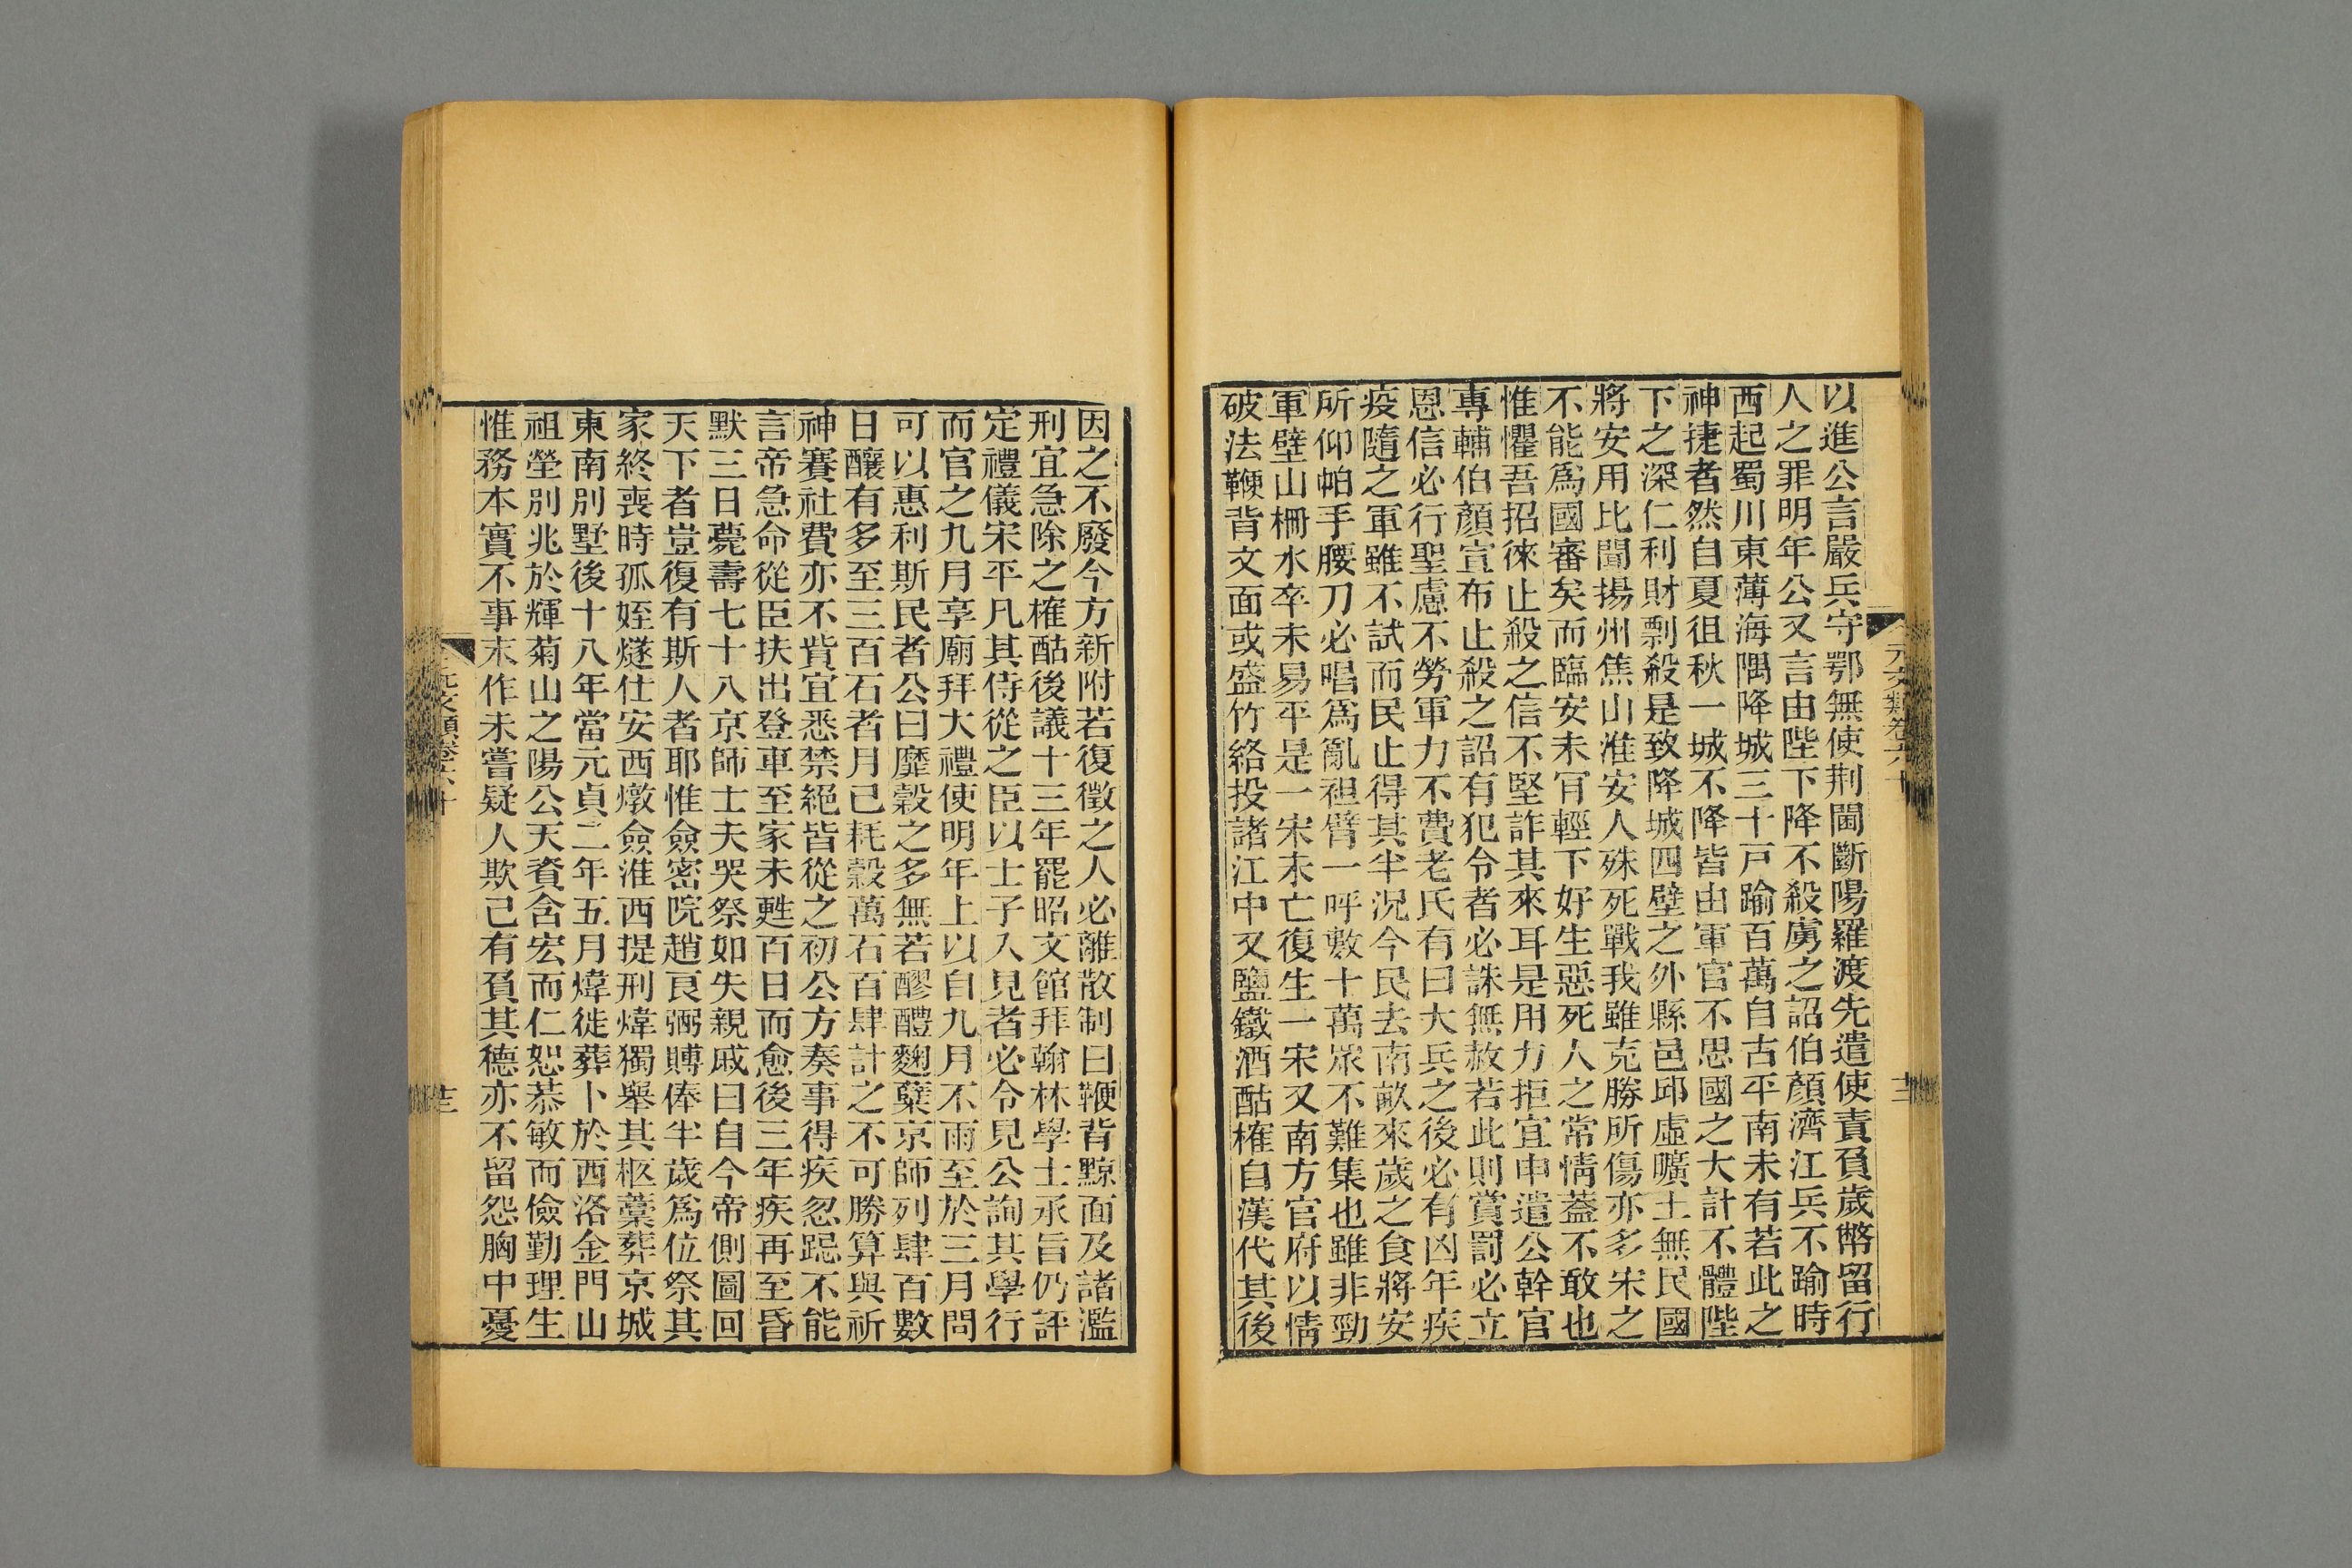 以進公言嚴兵守鄂無使荆閫斷陽羅渡先遣使責負歲幣留行
人之罪明年公又言由陛下降不殺虜之詔伯顏濟江兵不踰時
西起蜀川東薄海隅降城三十戸踰百萬自古平南未有若此之
神捷者然自夏徂秋一城不降皆由軍官不思國之大計不體陛
下之深仁利財剽殺是致降城四壁之外縣邑邱虛曠土無民國
將安用比聞揚州焦山淮安人殊死戰我雖克勝所傷亦多宋之
不能爲國審矣而臨安未肎輕下好生惡死人之常情蓋不敢也
惟懼吾招徠止殺之信不堅詐其來耳是用力拒宜申遣公幹官
專輔伯顏宣布止殺之詔有犯令者必誅無赦若此則賞罰必立
恩信必行聖慮不勞軍力不費老氏有曰大兵之後必有凶年疾
疫隨之軍雖不試而民止得其半況今民去南畝來歲之食將安
所仰帕手腰刀必唱爲亂袒臂一呼數十萬眾不難集也雖非勁
軍壁山柵水卒未易平是一宋未亡復生一宋又南方官府以情
破法鞭背文面或盛竹絡投諸江中又鹽鐵酒酤榷自漢代其後
元文類卷六十
十三
因之不廢今方新附若復徵之人必離散制曰鞭背黥面及諸濫
刑宜急除之榷酤後議十三年罷昭文館拜翰林學士承旨仍評
定禮儀宋平凡其侍從之臣以士子入見者必令見公詢其學行
而官之九月享廟拜大禮使明年上以自九月不雨至於三月問
可以惠利斯民者公曰糜穀之多無若醪醴麴糵京師列肆百數
日釀有多至三百石者月已耗穀萬石百肆計之不可勝算與祈
神賽社費亦不貲宜悉禁絕皆從之初公方奏事得疾忽跽不能
言帝急命從臣扶出登車至家未甦百日而愈後三年疾再至昏
默三日薨壽七十八京師士夫哭祭如失親戚曰自今帝側圖回
天下者豈復有斯人者耶惟僉密院趙良弼賻俸半歲爲位祭其
家終喪時孤姪燧仕安西燉僉淮西提刑煒獨舉其柩藁葬京城
東南別墅後十八年當元貞二年五月煒徙葬卜於西洛金門山
祖塋別兆於輝菊山之陽公天資含宏而仁恕恭敏而儉勤理生
惟務本實不事末作未嘗疑人欺己有負其德亦不留怨胸中憂